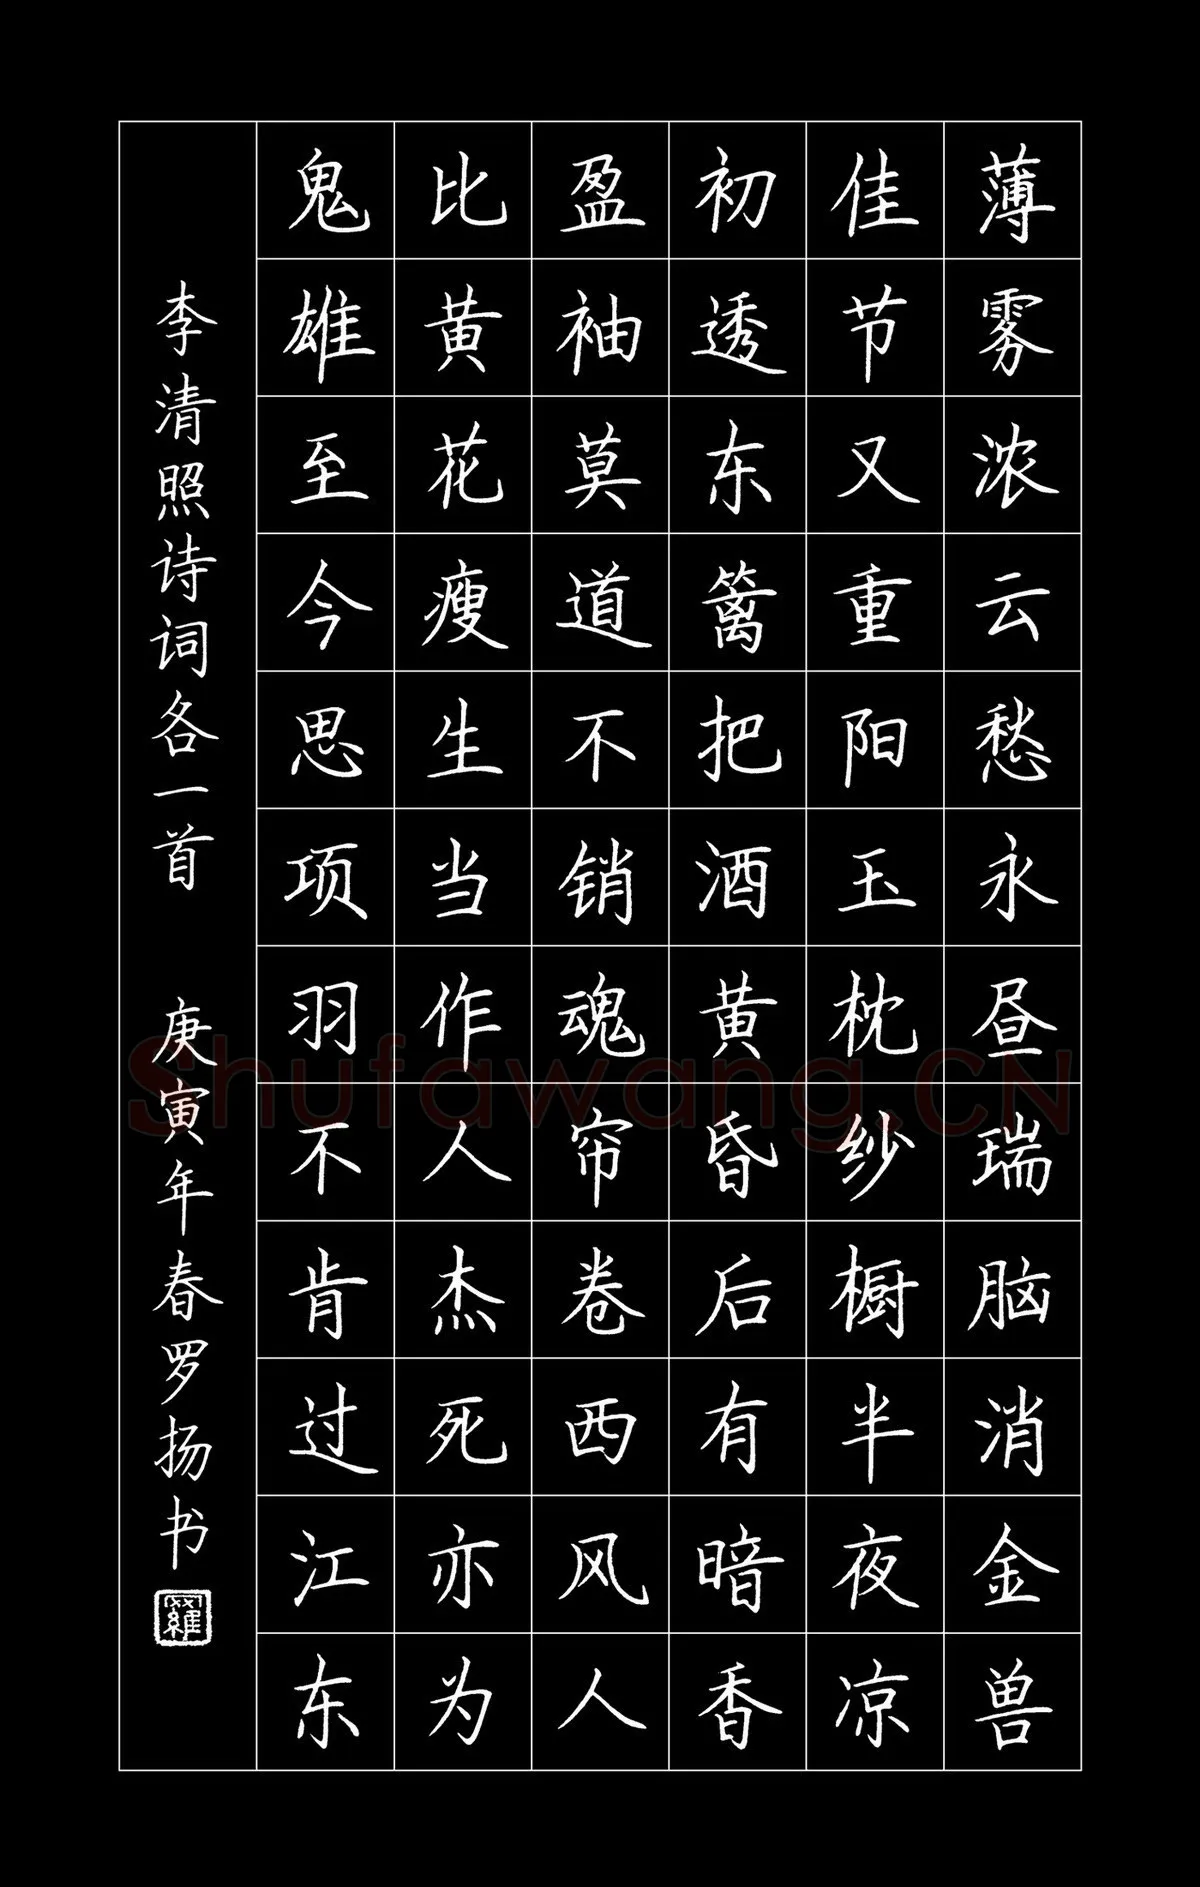 薄雾浓云愁永昼瑞脑消金兽
佳节又重阳玉枕纱橱半夜凉
初透东篱把酒黄昏后有暗香
盈袖莫道不销魂帘卷西风人
比黄花瘦生当作人杰死亦为
鬼雄至今思项羽不肯过江东
李清照诗词各一首 庚寅年春罗扬书
羅
Shufawang.CN